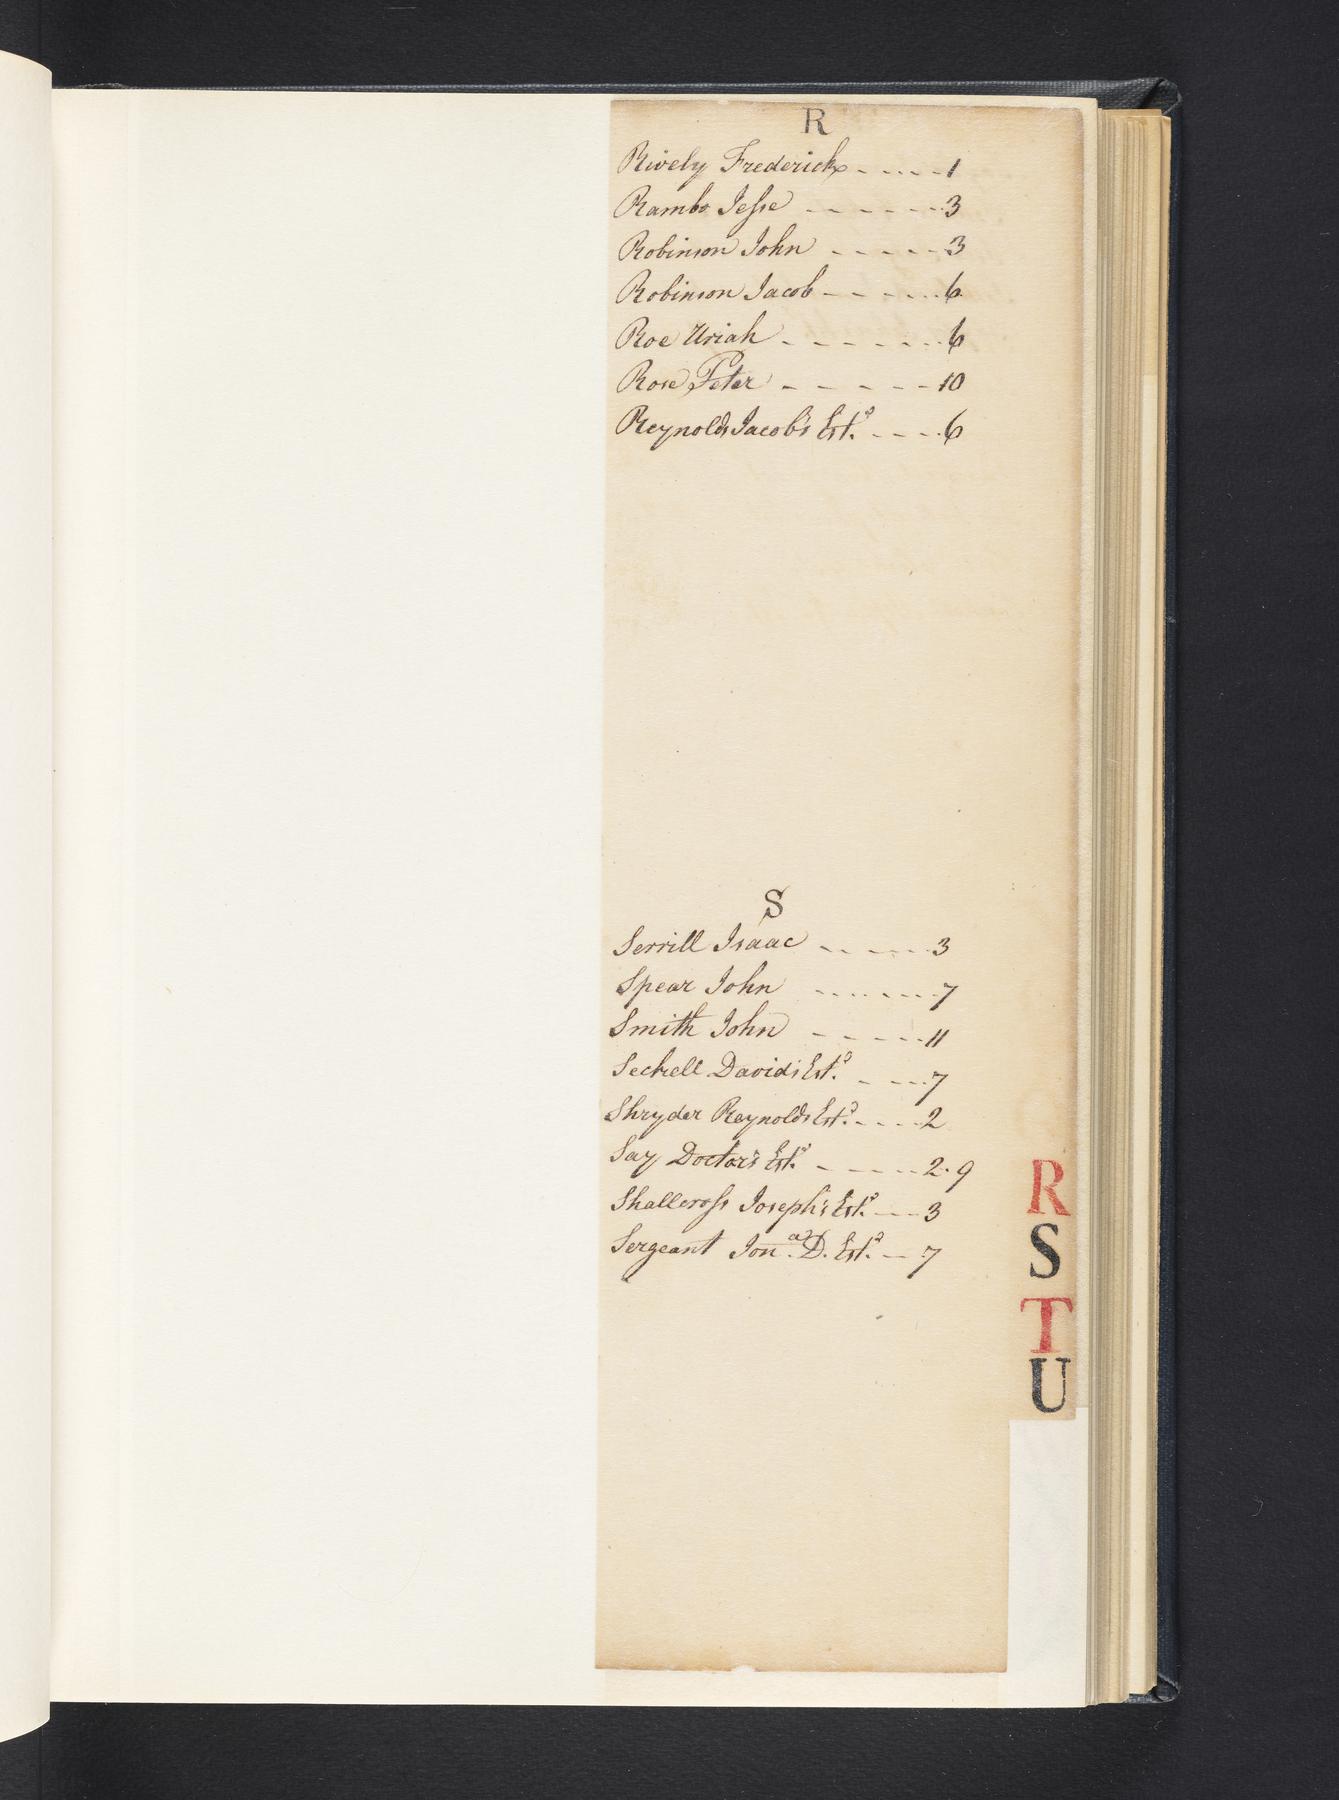 R
Rively Frederick - - - - - 1
Rambo Jesse - - - - - - 3
Robinson John - - - - - 3
Robinson Jacob - - - - - 6
Roe Uriah - - - - - - - 6
Rose Peter - - - - - - 10
Reynolds Jacob's Est.e - - - - 6
S
Serrill Isaac - - - - - 3
Spear John - - - - - - - 7
Smith John - - - - - 11
Seckell David's Est.e - - - - 7
Shryder Reynolds Est.e - - - - 2
Say Doctor's Est.e - - - - - 2.9
Shallcross Joseph's Est.e - - - 3
Sergeant Jon.a D. Est.e - - 7
R
S
T
U